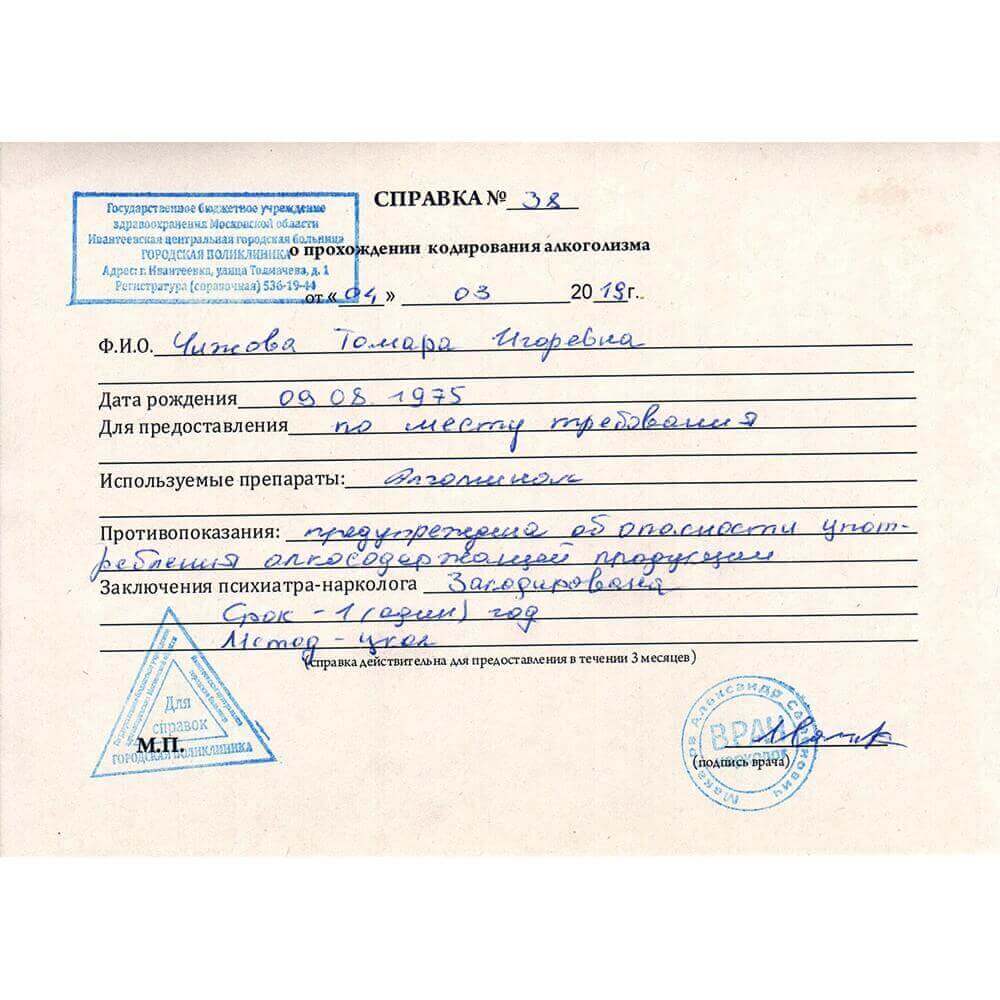 СПРАВКА № 38
Государственное бюджетное учреждение
здравоохранения Московской области
Ивантеевская центральная городская больница
ГОРОДСКАЯ ПОЛИКЛИНИКА
Адрес: г. Ивантеевка, улица Толмачева, д. 1
Регистратура (справочная) 536-19-44
о прохождении кодирования алкоголизма
от « 04 » 03 2019г.
Ф.И.О. Чижова Томара Игоревна
Дата рождения 09 08. 1975
Для предоставления по месту требования
Используемые препараты:
Противопоказания: предупреждена об опасности упот-
ребления алкосодержащей продукции
Заключения психиатра-нарколога Закодирована
Срок - 1 (один) год
Метод - укол
(справка действительна для предоставления в течении 3 месяцев)
Для
справок
М.П.
ГОРОДСКАЯ ПОЛИКЛИНИКА
Макаров Александр
ВРАЧ
нарколог
(подпись врача)